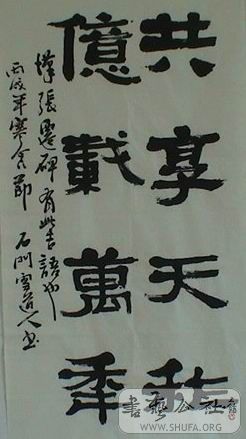 共享天祚
億載萬年
漢張遷碑有此吉語也
丙戌年寒食節 石門雪道人書
書藝公社
WWW.SHUFA.ORG